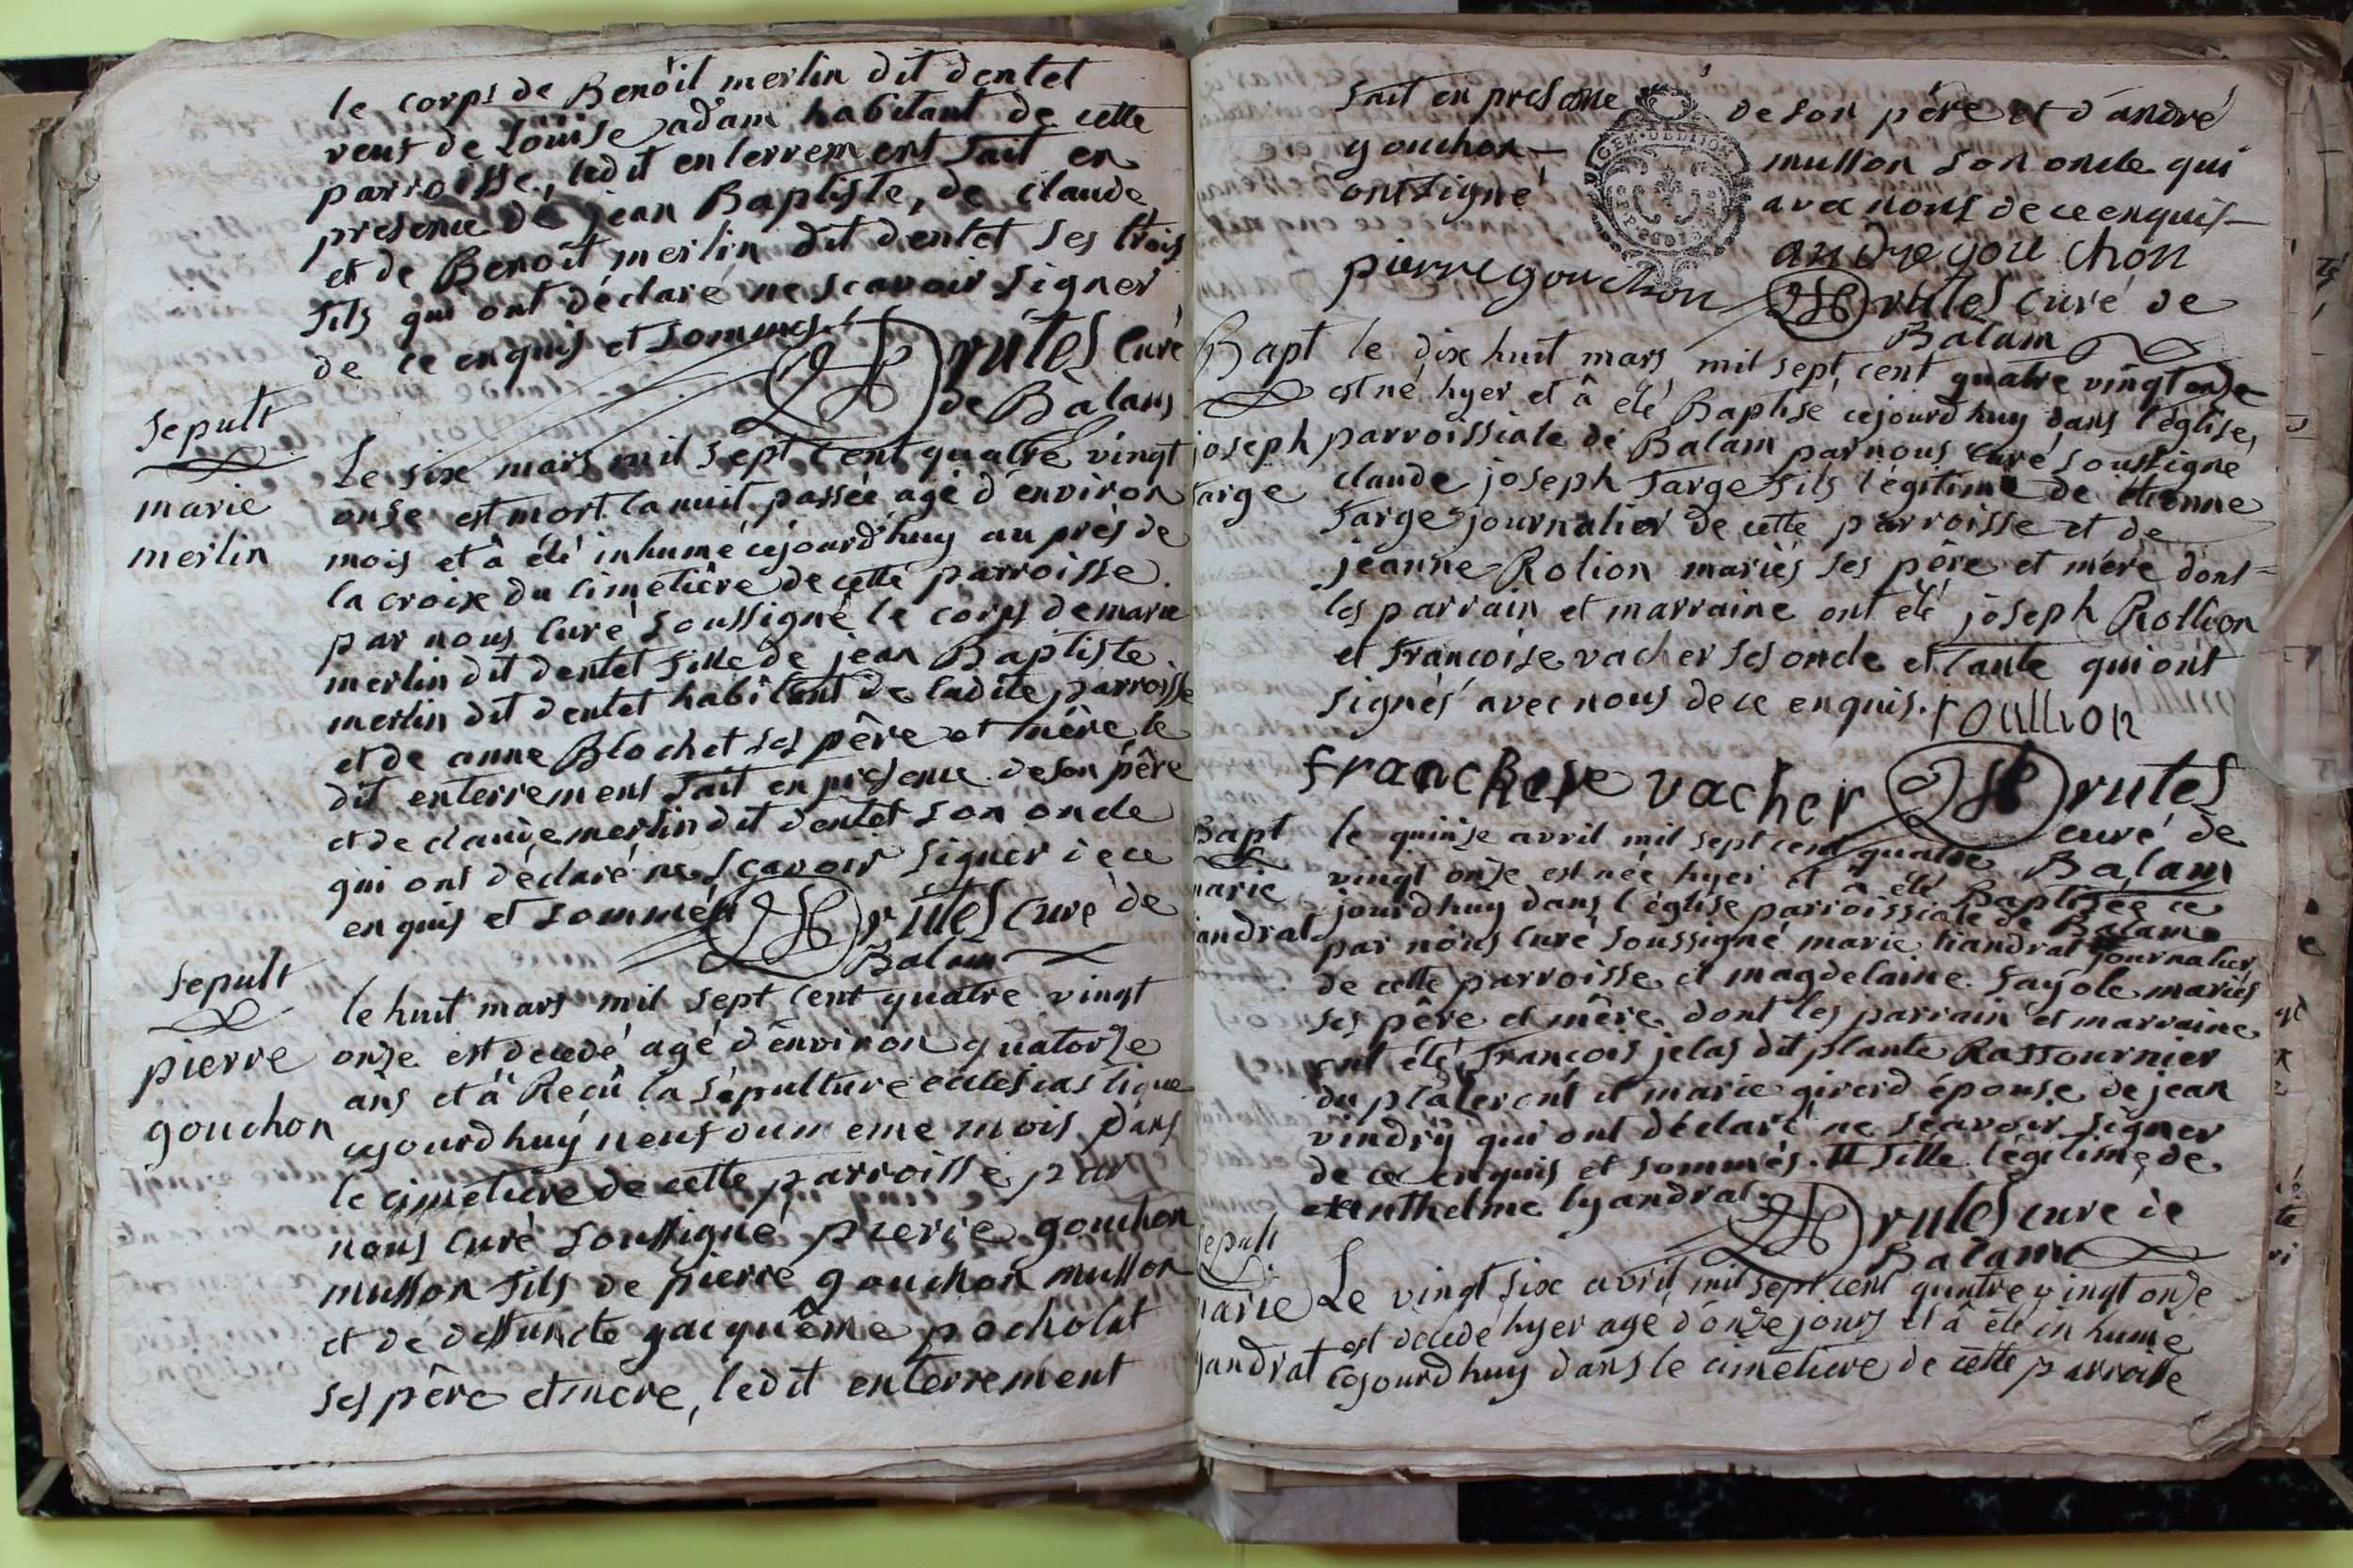 le corps de Benoit merlin dit dentet
veuf de Loüise adam habitant de cette
parroisse, ledit enterrement fait en
presence de jean Baptiste, de claude
et de Benoit merlin dit dentet ses trois
fils qui ont déclaré ne scavoir signer
de ce enquis et sommes.
Brutes curé
de Balam
sepult
marie
merlin
Le six mars mil sept cent quatre vingt
onse est mort la nuit passée agé d'environ
mois et â été inhumé cejourd'huy au près de
la croix du cimetière de cette parroisse
par nous curé soussigné le corps de marie
merlin dit dentet fille de jean Baptiste
merlin dit dentet habitant de ladite parroisse
et de anne Blochet ses père et mère le
dit enterrement fait en presence de son père
et de claude merlin dit dentet son oncle
qui ont déclaré ne sçavoir signer de ce
enquis et sommés
Brutes curé de
Balam
sepult
pierre
gouchon
le huit mars mil sept cent quatre vingt
onze est decedé agé d'environ quatorze
ans et â Reçû la sépulture ecclesiastique
cejourdhuy neuf du meme mois dans
le cimetiere de cette parroisse par
nous curé soussigné pierre gouchon
musson fils de pierre gouchon musson
et de deffuncte jacquême pocholat
ses père et mere, ledit enterrement
fait en presence de son père et d'andré
gouchon musson son oncle qui
ont signé avec nous de ce enquis
andre gouchon
pierre gouchon Brutes curé de
Balam
Bapt
joseph
farge
le dix huit mars mil sept cent quatre vingt onze
est né hyer et â été Baptise cejourdhuy dans l'église
parroissiale de Balam par nous curé soussigné
claude joseph farge fils légitime de étienne
farge journalier de cette parroisse et de
jeanne Rolion mariés ses père et mère dont
les parrain et marraine ont été joseph Rollion
et francoise vacher ses oncle et tante qui ont
signés avec nous de ce enquis. roullion
francheise vacher Brutes
curé de
Balam
Bapt
marie
liandrat
le quinse avril mil sept cent quatre
vingt onze est née hyer et â été Baptisée ce
jourdhuy dans l'église parroissiale de Balam
par nous curé soussigné marie liandrat # journalier
de cette parroisse et magdelaine fayole mariés
ses père et mère dont les parrain et marraine
ont été françois jelas dit plante Rassournier
du plateront et marie girerd épouse de jean
vindry qui ont déclaré ne sçavoir signer
de ce enquis et sommés. # fille légitime de
anthelme lyandrat
Brutes curé de
Balam
sepult
marie
lyandrat
Le vingt six avril mil sept cent quatre vingt onze
est decedé hyer agé d'onze jours et â été inhumé
cejourdhuy dans le cimetiere de cette parroisse